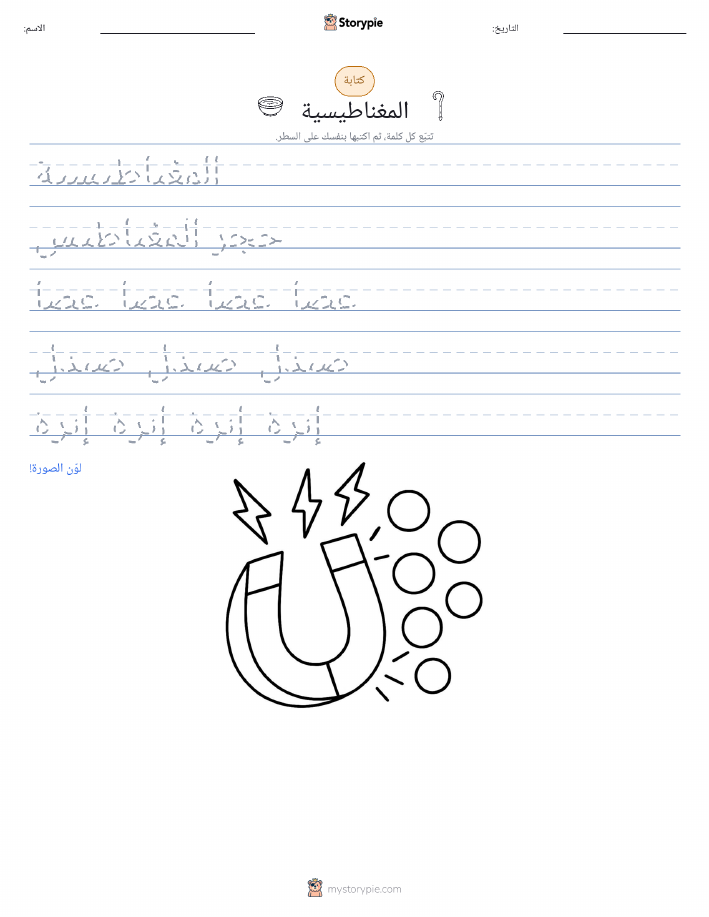 الاسم:
Storypie
التاريخ:
كتابة
المغناطيسية
تتبّع كل كلمة، ثم اكتبها بنفسك على السطر.
المغناطيسية
حجر المغناطيس
عصا عصا عصا عصا
صندل صندل صندل
إبرة إبرة إبرة إبرة
لوّن الصورة!
mystorypie.com